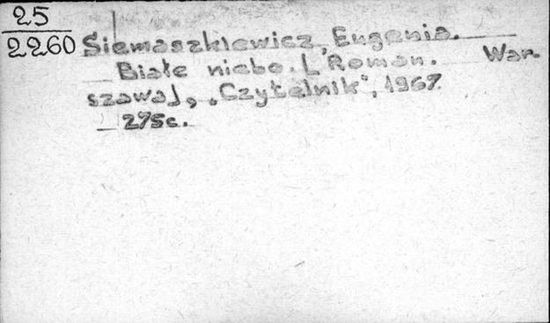 25
2260 Siemaszkiewicz, Eugenia.
Białe niebo. [Roman. War-
szawa], „Czytelnik", 1967.
275c.